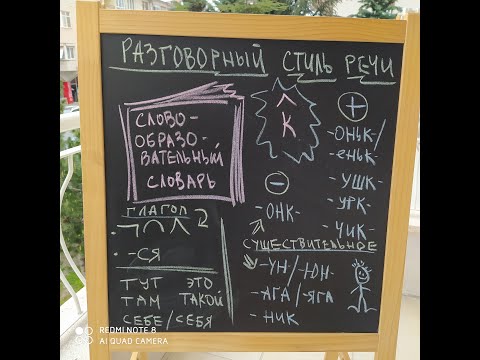 РАЗГОВОРНЫЙ СТИЛЬ РЕЧИ
СЛОВО-
ОБРАЗО-
ВАТЕЛЬНЫЙ
СЛОВАРЬ
К
+
-ОНЬК-/
-ЕНЬК-
-УШК-
-УГК-
-ЧИК-
-
-ОНК-
ГЛАГОЛ
-СЯ
ТУТ ЭТО
ТАМ ТАКОЙ
СЕБЕ/СЕБЯ
СУЩЕСТВИТЕЛЬНОЕ
-УН/-ЮН-
-АГА/-ЯГА
-НИК
REDMI NOTE 8
AI QUAD CAMERA